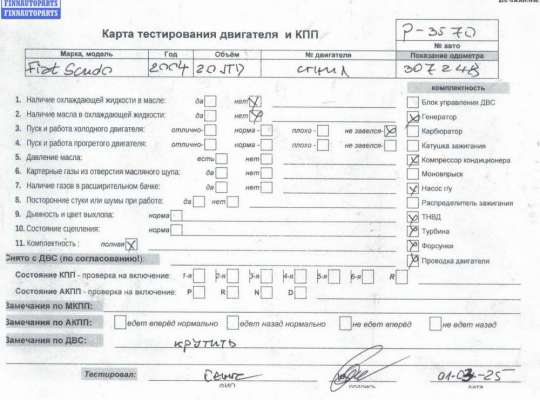 FINNAUTOPARTS
FINNAUTOPARTS
Карта тестирования двигателя и КПП
Р-3570
№ авто
Марка, модель Год Объём № двигателя Показание одометра
Fiat Scudo 2004 2.0JTD сгнил 307248
комплектность
1. Наличие охлаждающей жидкости в масле: да нет
2. Наличие масла в охлаждающей жидкости: да нет
3. Пуск и работа холодного двигателя: отлично- норма - плохо - не завелся-
4. Пуск и работа прогретого двигателя: отлично- норма - плохо - не завелся-
5. Давление масла: есть нет
6. Картерные газы из отверстия масляного щупа: да нет
7. Наличие газов в расширительном бачке: да нет
8. Посторонние стуки или шумы при работе: да нет
9. Дывность и цвет выхлопа: норма
10. Состояние сцепления: норма
11. Комплектность : полная
Блок управления ДВС
Генератор
Карбюратор
Катушка зажигания
Компрессор кондиционера
Моновпрыск
Насос г/у
Распределитель зажигания
ТНВД
Турбина
Форсунки
Проводка двигателя
Снято с ДВС (по согласованию!):
Состояние КПП - проверка на включение: 1-я 2-я 3-я 4-я 5-я 6-я R
Состояние АКПП - проверка на включение: P R N D
Замечания по МКПП:
Замечания по АКПП: едет вперёд нормально едет назад нормально не едет вперёд не едет назад
Замечания по ДВС: крутить
Тестировал: 01-03-25
ФИО подпись дата